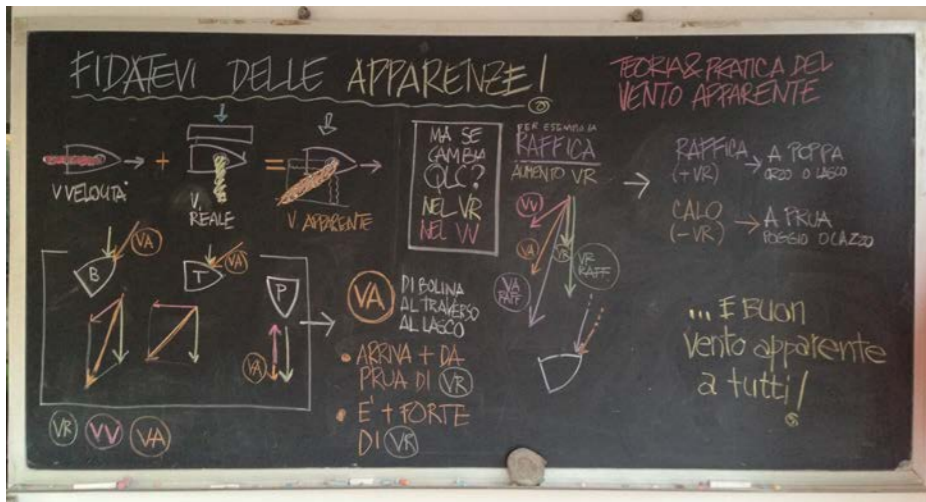 FIDATEVI DELLE APPARENZE!
TEORIA & PRATICA DEL
VENTO APPARENTE
+
=
V VELOCITÀ
V. REALE
V. APPARENTE
MA SE
CAMBIA
QLC?
NEL VR
NEL VV
PER ESEMPIO LA
RAFFICA
AUMENTO VR
VV
VA
VR
VR
RAFF
VA
RAFF
RAFFICA
(+VR)
A POPPA
ORZO O LASCO
CALO
(-VR)
A PRUA
POGGIO O CAZZO
VA
B
VA
T
P
VA
VA
DI BOLINA
AL TRAVERSO
AL LASCO
• ARRIVA + DA
PRUA DI VR
• E' + FORTE
DI VR
VR VV VA
... E BUON
vento apparente
a tutti!